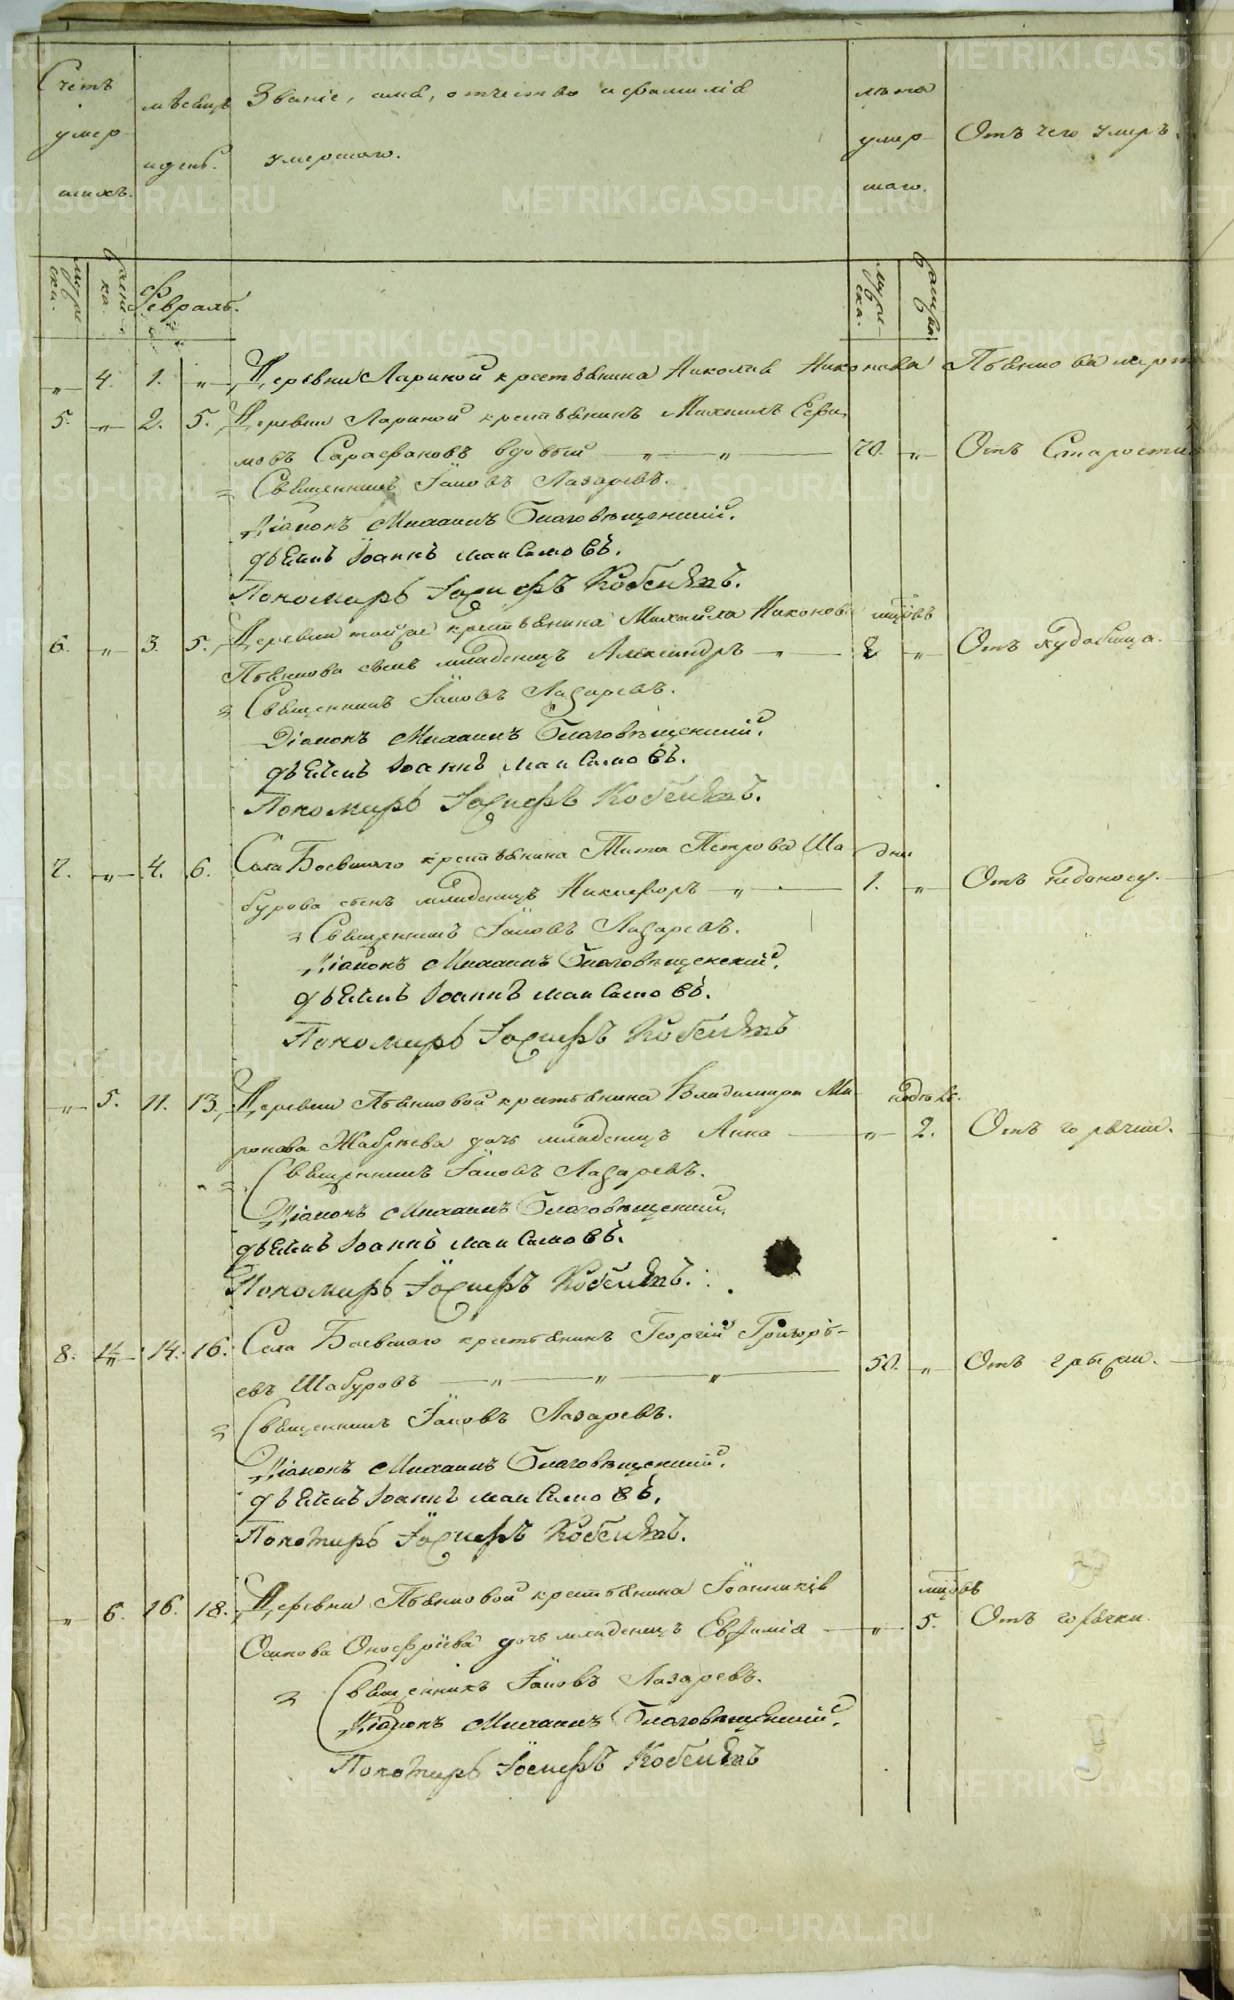 Счетъ умершихъ.
мѣсяцъ и день.
Званіе, имя, отчество и фамилія умершаго.
лѣта умершаго.
Отъ чего умеръ.
мужеска.
женска.
Февраль.
мужеска.
женска
„ 4. 1. „ Деревни Лариной крестьянина Николая Никонова
5. „ 2. 5. Деревни Лариной крестьянинъ Михаилъ Ефи
мовъ Сарафановъ вдовый „ „ 70. „ Отъ Старости
Священникъ Іаковъ Лазаревъ.
Діаконъ Михаилъ Благовѣщенскій.
дьячекъ Іоаннъ Максимовъ.
Пономарь Іосифъ
6. „ 3. 5. Деревни той же крестьянина Михайла Никонова мцовъ
сынъ младенецъ Александръ „ 2 „ Отъ худобища.
Священникъ Іаковъ Лазаревъ.
Діаконъ Михаилъ Благовѣщенскій.
дьячекъ Іоаннъ Максимовъ.
Пономарь Іосифъ
7. „ 4. 6. Села Боевскаго крестьянина Тита Петрова Ша дни
бурова сынъ младенецъ Никифоръ „ 1. „ Отъ недоносу.
Священникъ Іаковъ Лазаревъ.
Діаконъ Михаилъ Благовѣщенскій.
дьячекъ Іоаннъ Максимовъ.
Пономарь Іосифъ
„ 5. 11. 13. Деревни Пьянковой крестьянина Владимира Ми
ронова дочь младенецъ Анна „ 2. Отъ горячки.
Священникъ Іаковъ Лазаревъ.
Діаконъ Михаилъ Благовѣщенскій.
дьячекъ Іоаннъ Максимовъ.
Пономарь Іосифъ
8. „ 14. 16. Села Боевскаго крестьянинъ Георгій Григорь-
евъ Шабуровъ „ „ „ 50. „ Отъ грыжи.
Священникъ Іаковъ Лазаревъ.
Діаконъ Михаилъ Благовѣщенскій.
дьячекъ Іоаннъ Максимовъ.
Пономарь Іосифъ
„ 6. 16. 18. Деревни Пьянковой крестьянина Іоанникія мцовъ
Осипова Онофріева дочь младенецъ Евфимія „ 5. Отъ горячки.
Священникъ Іаковъ Лазаревъ.
Діаконъ Михаилъ Благовѣщенскій.
Пономарь Іосифъ
METRIKI.GASO-URAL.RU